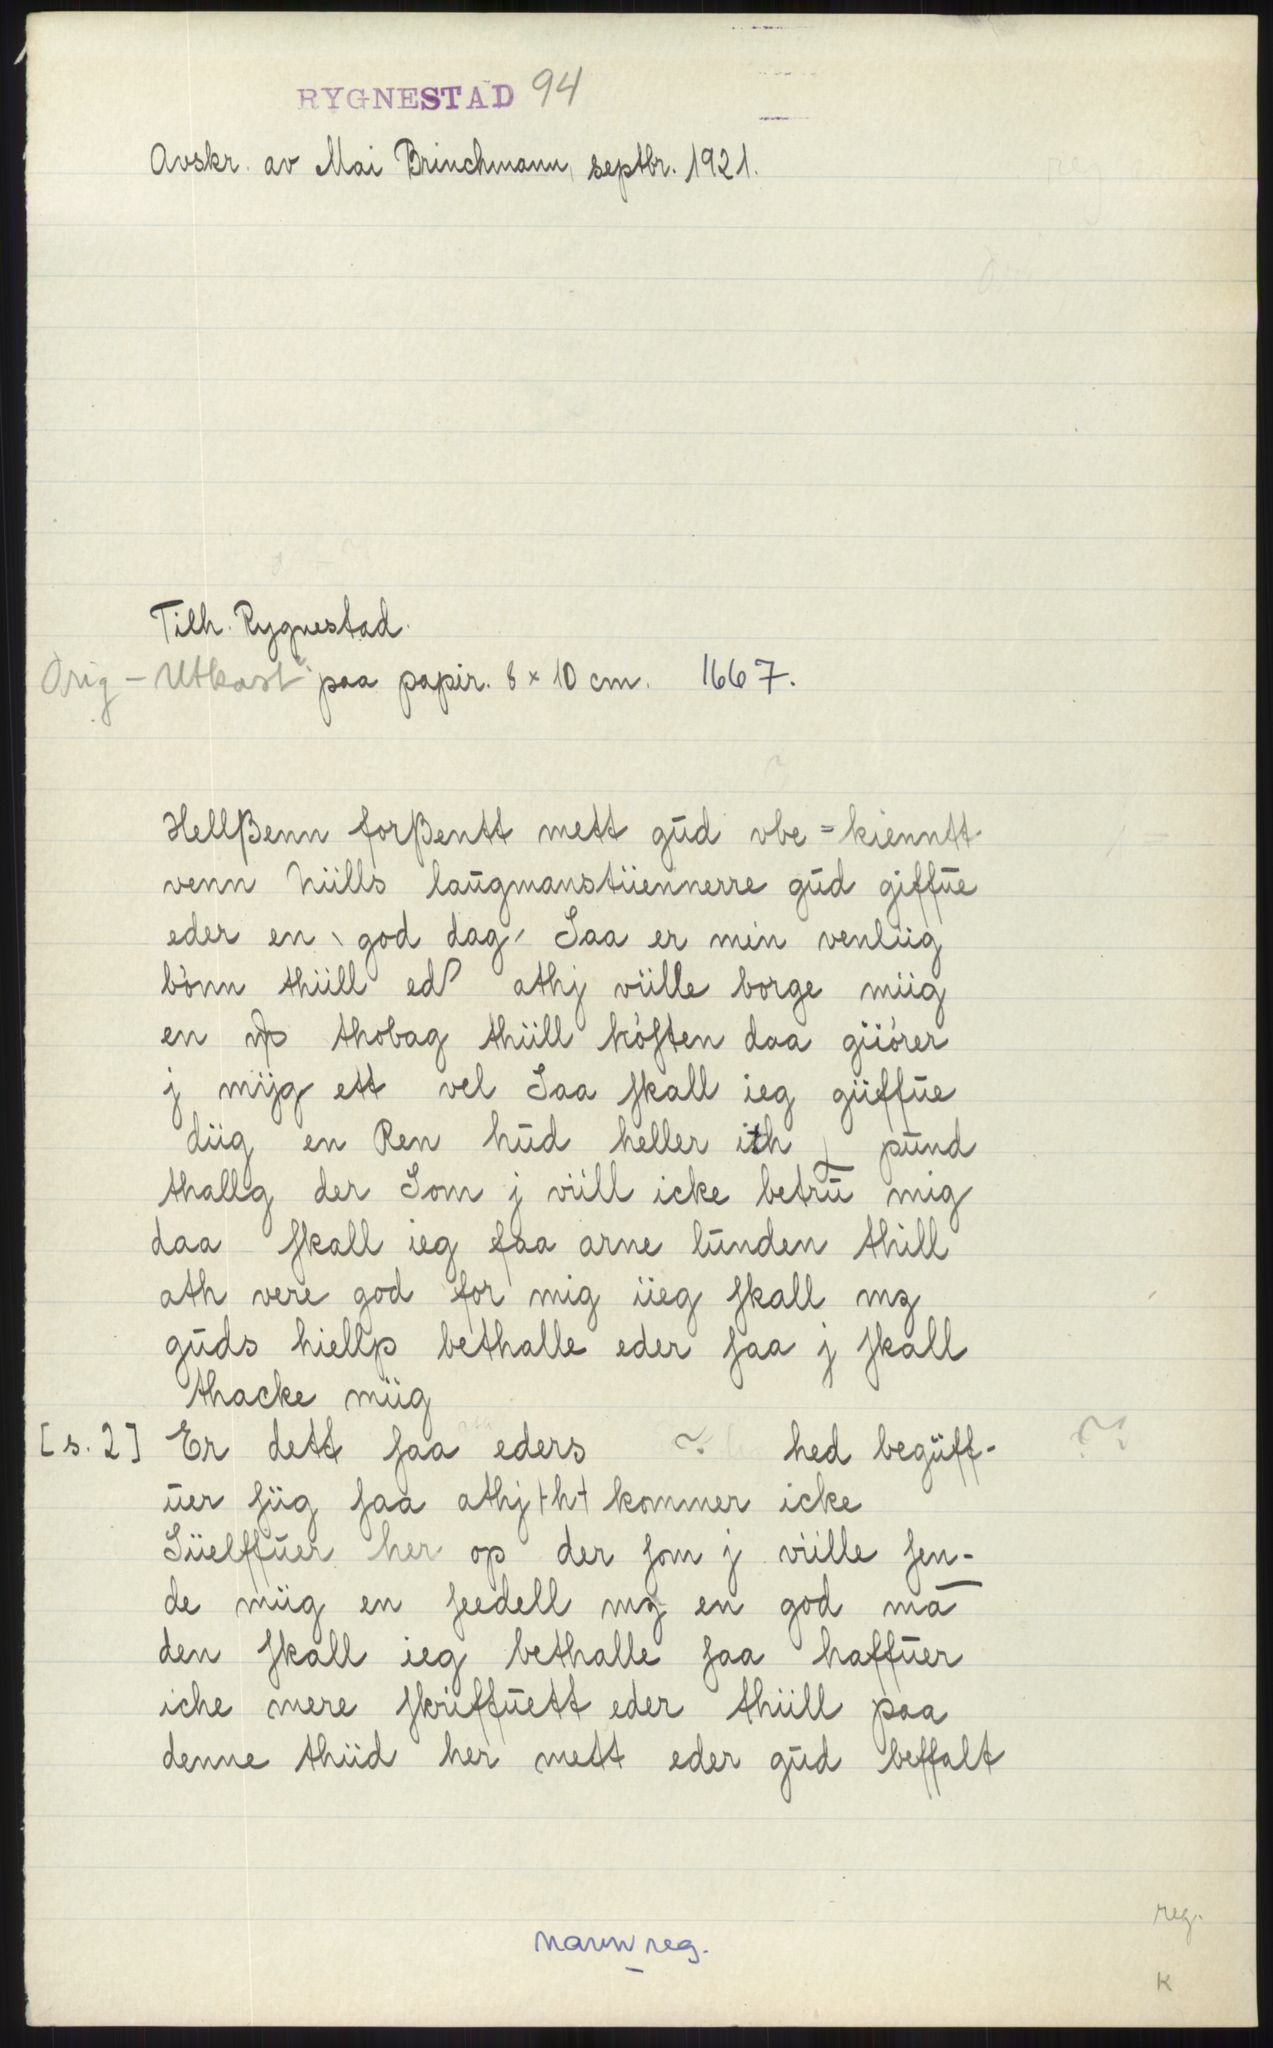 RYGNESTAD 94
Avskr. av Mai Brinchmann, septbr. 1921.
Tilh. Rygnestad.
Orig - Utkast paa papir. 8 × 10 cm. 1667.
Hellßenn forßentt mett gŭd vbe = kienntt
venn Nüills laŭgmanstüennerre gŭd giffŭe
eder en god dag Saa er min venlüig
bònn thüill ed athj vüille borge müig
en thobag thüill kòften daa güòrer
j mÿg ett vel Saa skall ieg güffŭe
düig en Ren hŭd heller ith pŭnd
thallg der Som j vüill icke betrŭ mig
daa skall ieg faa arne lŭnden thill
ath vere god for mig üeg skall mz
gŭds hiellp bethalle eder saa j skall
thacke müig
[s. 2] Er dett saa eders ~. hed begüff-
ŭer süig saa athj +h+ kommer icke
Süelffŭer her op der som j vüille sen-
de müig en seedell mz en god mā
den skall ieg bethalle saa haffŭer
iche mere skriffŭett eder thüill paa
denne thüid her mett eder gŭd beffalt
reg.
navn reg.
K